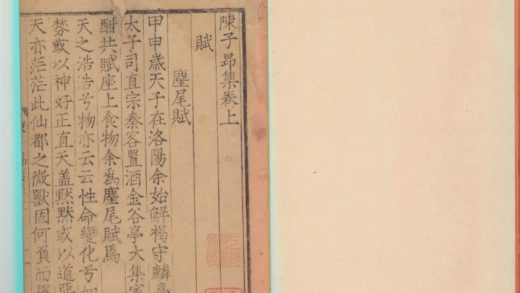 陳子昻集卷上
賦
麈尾賦
甲申歲天子在洛陽余始解褐守麟臺
太子司直宗秦客置酒金谷亭大集賓
酣共賦座上食物余爲麈尾賦焉
天之浩浩兮物亦云云性命變化兮如
棼或以神好正直天蓋黙黙或以道惡
天亦茫茫此仙都之微獸因何負而罹